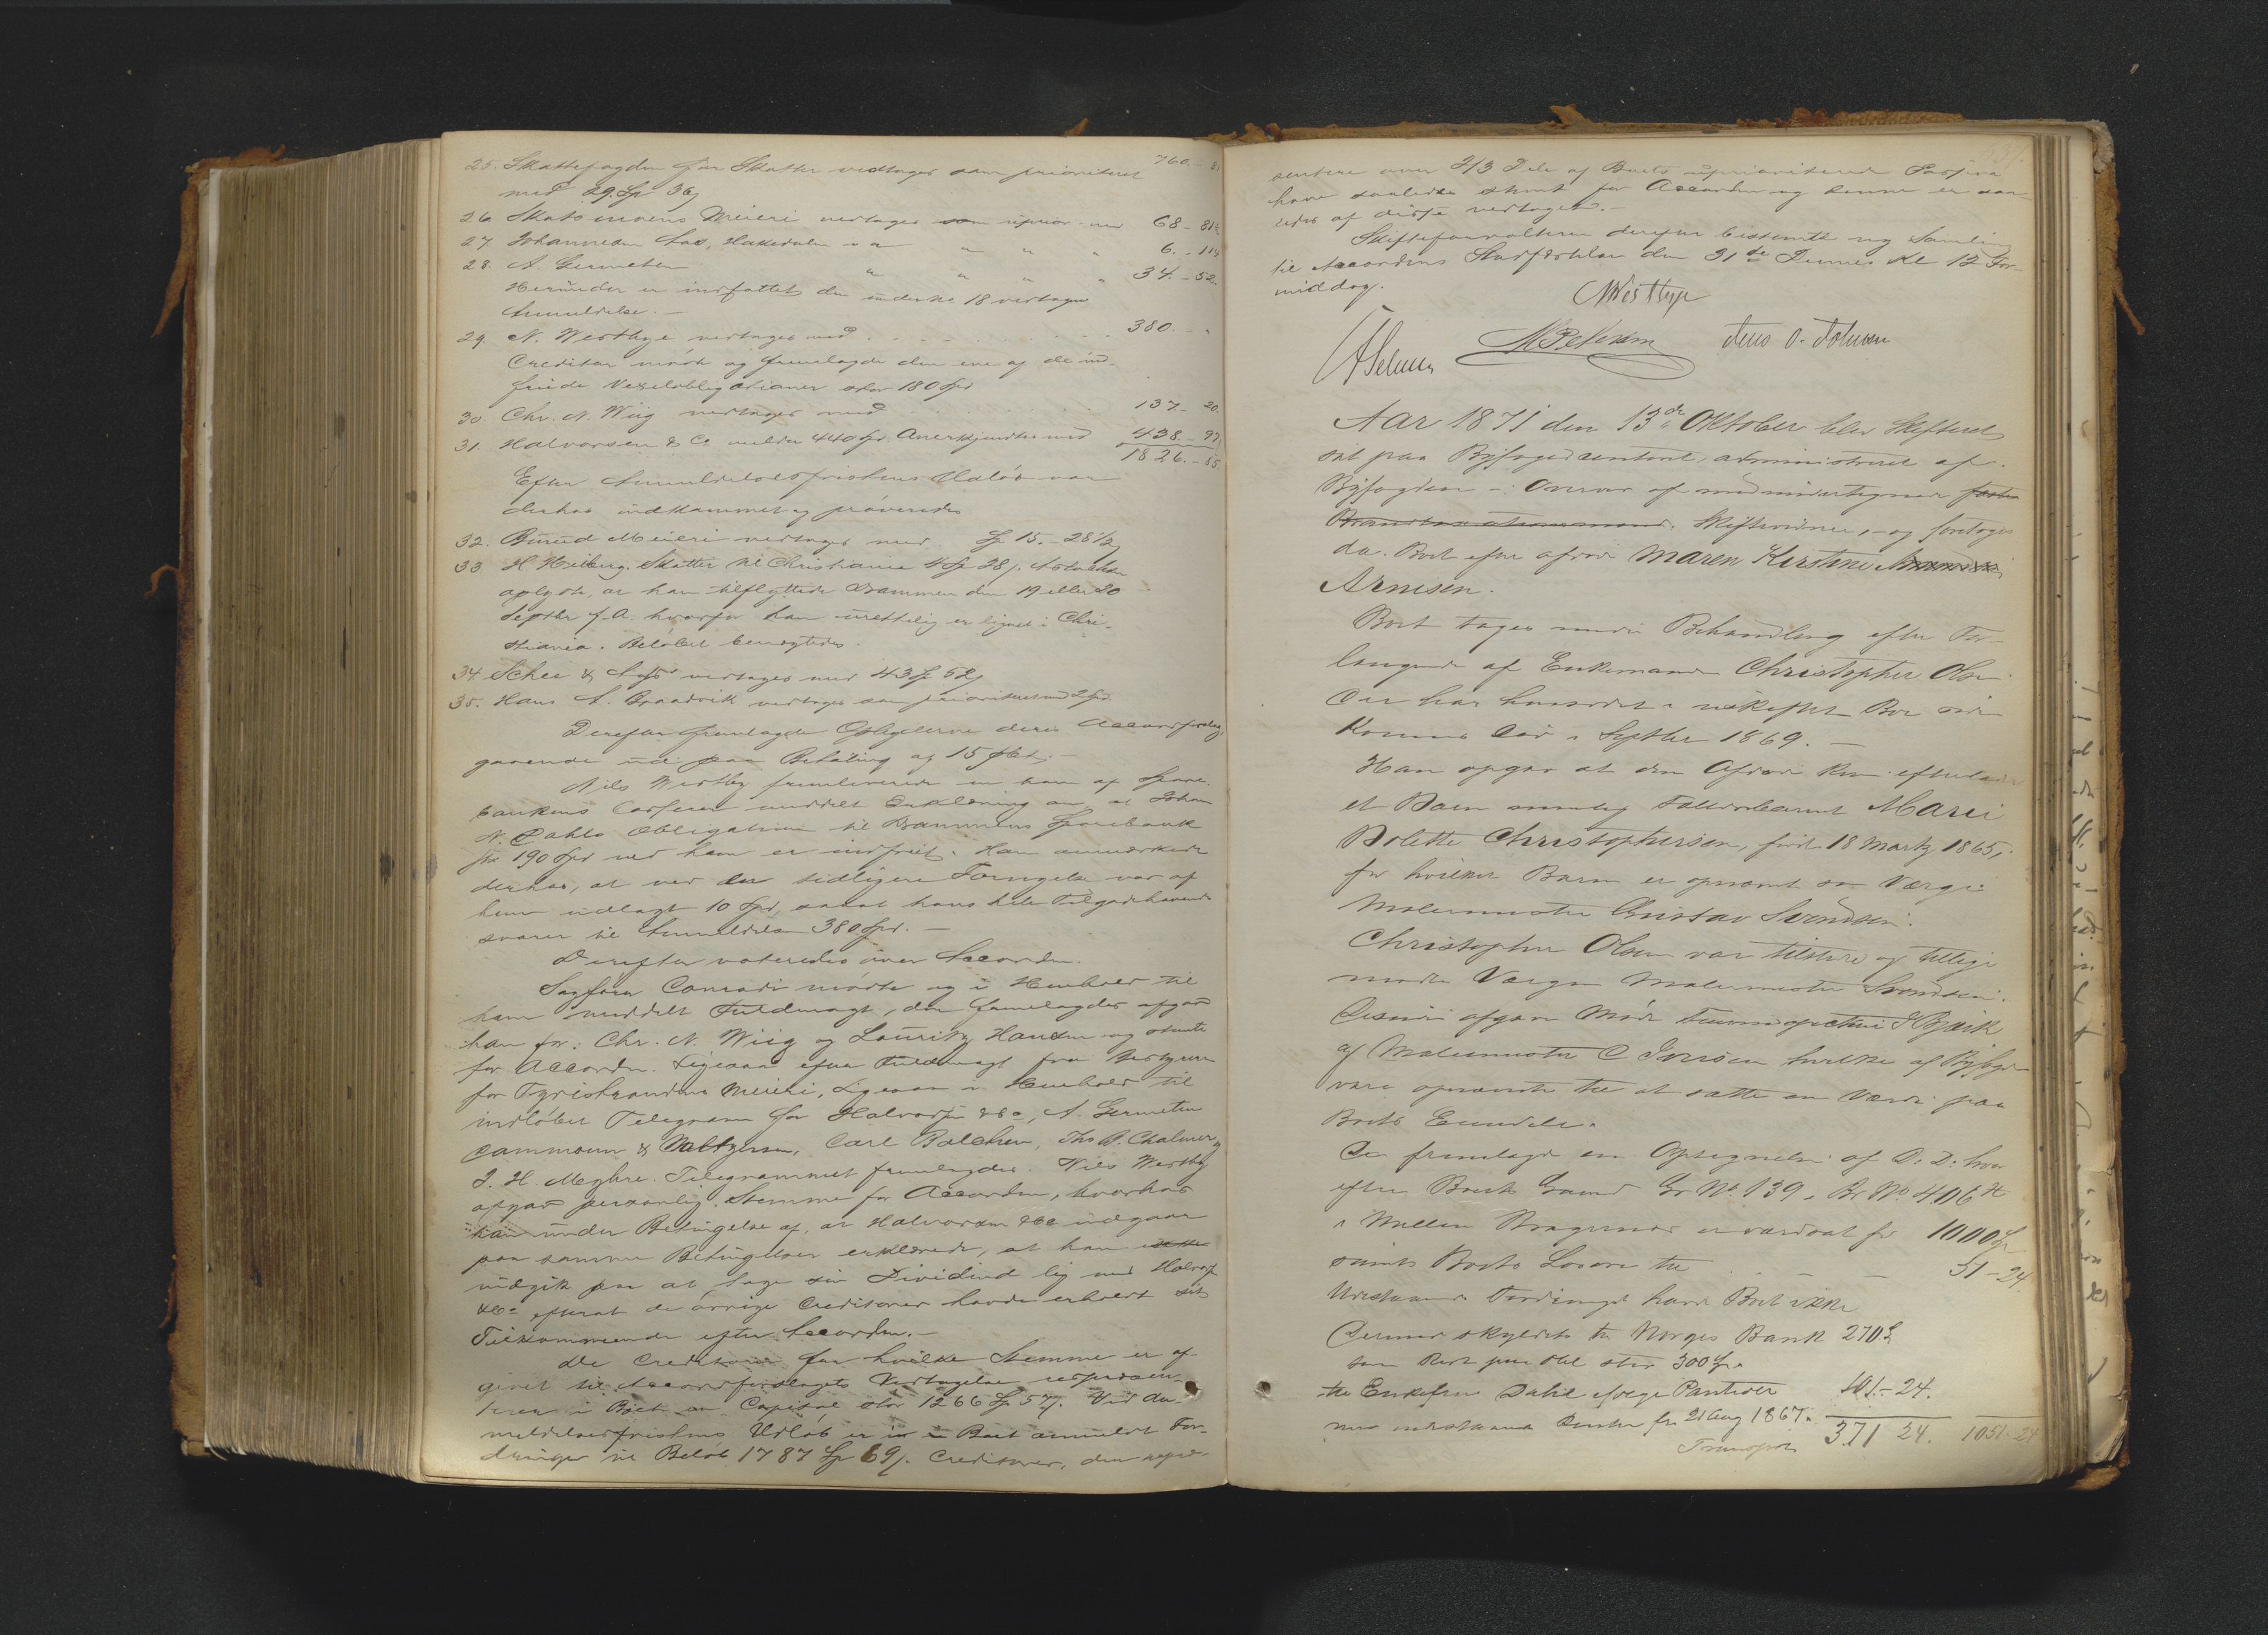 760.-8
25. Skattefogden for Skatter vedtages som prioriteret
med 29 Sp 36ꞵ
26 Skatsmoens Meieri vedtages som uprior. med 68-81½
27. Johannesen Aas, Hakedalen " " " " " 6.-114
28. A. Germeten " " " " 34.-52.
Herunder er indfattet den under No 18 vedtagne
Anmeldelse.-
29 N. Westbye vedtages med . . . . . 380.-"
Creditor mødte og fremlagde den ene af de ind-
friede Vexelobligationer stor 180 Spd
30 Chr. N. Wiig vedtages med 137-20
31. Halvorsen & Co melder 440 Spd. Anerkjendtes med 438.-97
1826.-85
Efter Anmeldelsesfristens Udløb var
derhos indkommet og prøvedes
32. Buud Meieri vedtages med Sp 15.-28½
33 H. Heiberg. Skatter til Christiania 4 Sp 28ꞵ.
oplyste, at han tilflyttede Drammen den 19 eller 20
Septbr f. A. hvorfor han urettelig er lignet i Chri-
stiania. Beløbet benægtedes.
34 Schee & vedtages med 43 Sp 52ꞵ
35. Hans A. Braadvik vedtages som prioriteret med 2 Spd
Derefter fremlagde Opbyderne deres Accordforslag,
gaaende ud paa Betaling af 15 pCt.-
Nils Westby fremleverede en ham af Spare-
bankens Casserer meddelt Erklæring om, at Johan
N. Dahls Obligation til Drammens Sparebank
for 190 Spd ved ham er indfriet. Han anmærkede
derhos, at ved den tidligere Fornyelse var af
ham udlagt 10 Spd, saaat hans hele Tilgodehavende
svarer til Anmeldelsen 380 Spd.-
Derefter voteredes over Accorden.
Sagfører Conradi mødte og i Henhold til
ham meddelt Fuldmagt, der fremlagdes afgav
han for: Chr. N. Wiig og Lauritz Hansen og stemte
for Accorden. Ligesaa efter Fuldmagt fra Bestyreren
for Tyristrandens Meieri, Ligesaa i Henhold til
indløbet Telegram for Halvorsen & Co, A. Germeten
Dammann & Meltzersen, Carl Balchen, Ths B. Chalmer og
J. H. Meghre. Telegrammet fremlagdes. Nils Westby
afgav personlig Stemme for Accorden, hvorhos
han under Betingelse af, at Halvorsen & Co indgaar
paa samme Betingelser erklærede, at han
indgik paa at tage sin Dividend lig med Halvors.
& Co efterat de øvrige Creditorer havde erholdt sit
Tilkommende efter Accorden.-
De Creditorer for hvilke Stemme er af-
givet til Accordforslagets Vedtagelse repræsen-
terer i Boet en Capital stor 1266 Sp 57ꞵ. Ved An-
meldelsesfristens Udløb er i Boet anmeldt For-
dringer til Beløb 1787 Sp 69ꞵ. Creditorer, der repræ-
sentere over 2/3 Dele af Boets uprioriterede Passiva
have saaledes stemt for Accorden og denne er saa-
ledes af disse vedtaget.-
Skifteforvalteren derefter bestemte ny Samling
til Accordens Stadfæstelse den 31te Dennes Kl 12 For-
middag.
NWestbye
Jens O. Johnsen
Aar 1871 den 13de Oktober blev Skifteret
sat paa Byfogedcontoret, administreret af
Byfogden i Overvær af medundertegnede faste
Skiftevidner, og foretoges
da Boet efter afdøde Maren Kirstine
Arnesen.
Boet tages under Behandling efter For-
langende af Enkemanden Christopher Olsen
Der har hensiddet i uskiftet Bo siden
Konens Død i Septber 1869.-
Han opgav at den Afdøde kun efterlader
et Barn nemlig Fællesbarnet Maren
Bolette Christophersen, født 18 Marts 1865,
for hvilket Barn er opnævnt som Værge
Malermester Gustav Svendsen.
Christopher Olsen var tilstede og tillige
mødte Værgen Malermester Svendsen.
Desuden afgav Møde H Bjørk
og Malermester C Iversen hvilke af Byfogden
vare opnævnte til at sætte en Værdi paa
Boets Eiendele.
De fremlagde en Optegnelse af D: D: hvor-
efter Boets Gaard Gr No 139, Br No 406 H
i Mellem Bragernæs er værdsat for 1000 Sp
samt Boets Løsøre til - - 51-24
Udestaaende Fordringer havde Boet ikke
Derimod skyldtes til Norges Bank 270 S.
som Rest paa Obl stor 300 Sp.
til Enkefru Dahl ifølge Panteobl 101-24.
med indestaaende Renter fra 21 Aug 1867. 371 24. 1051-24
Transport